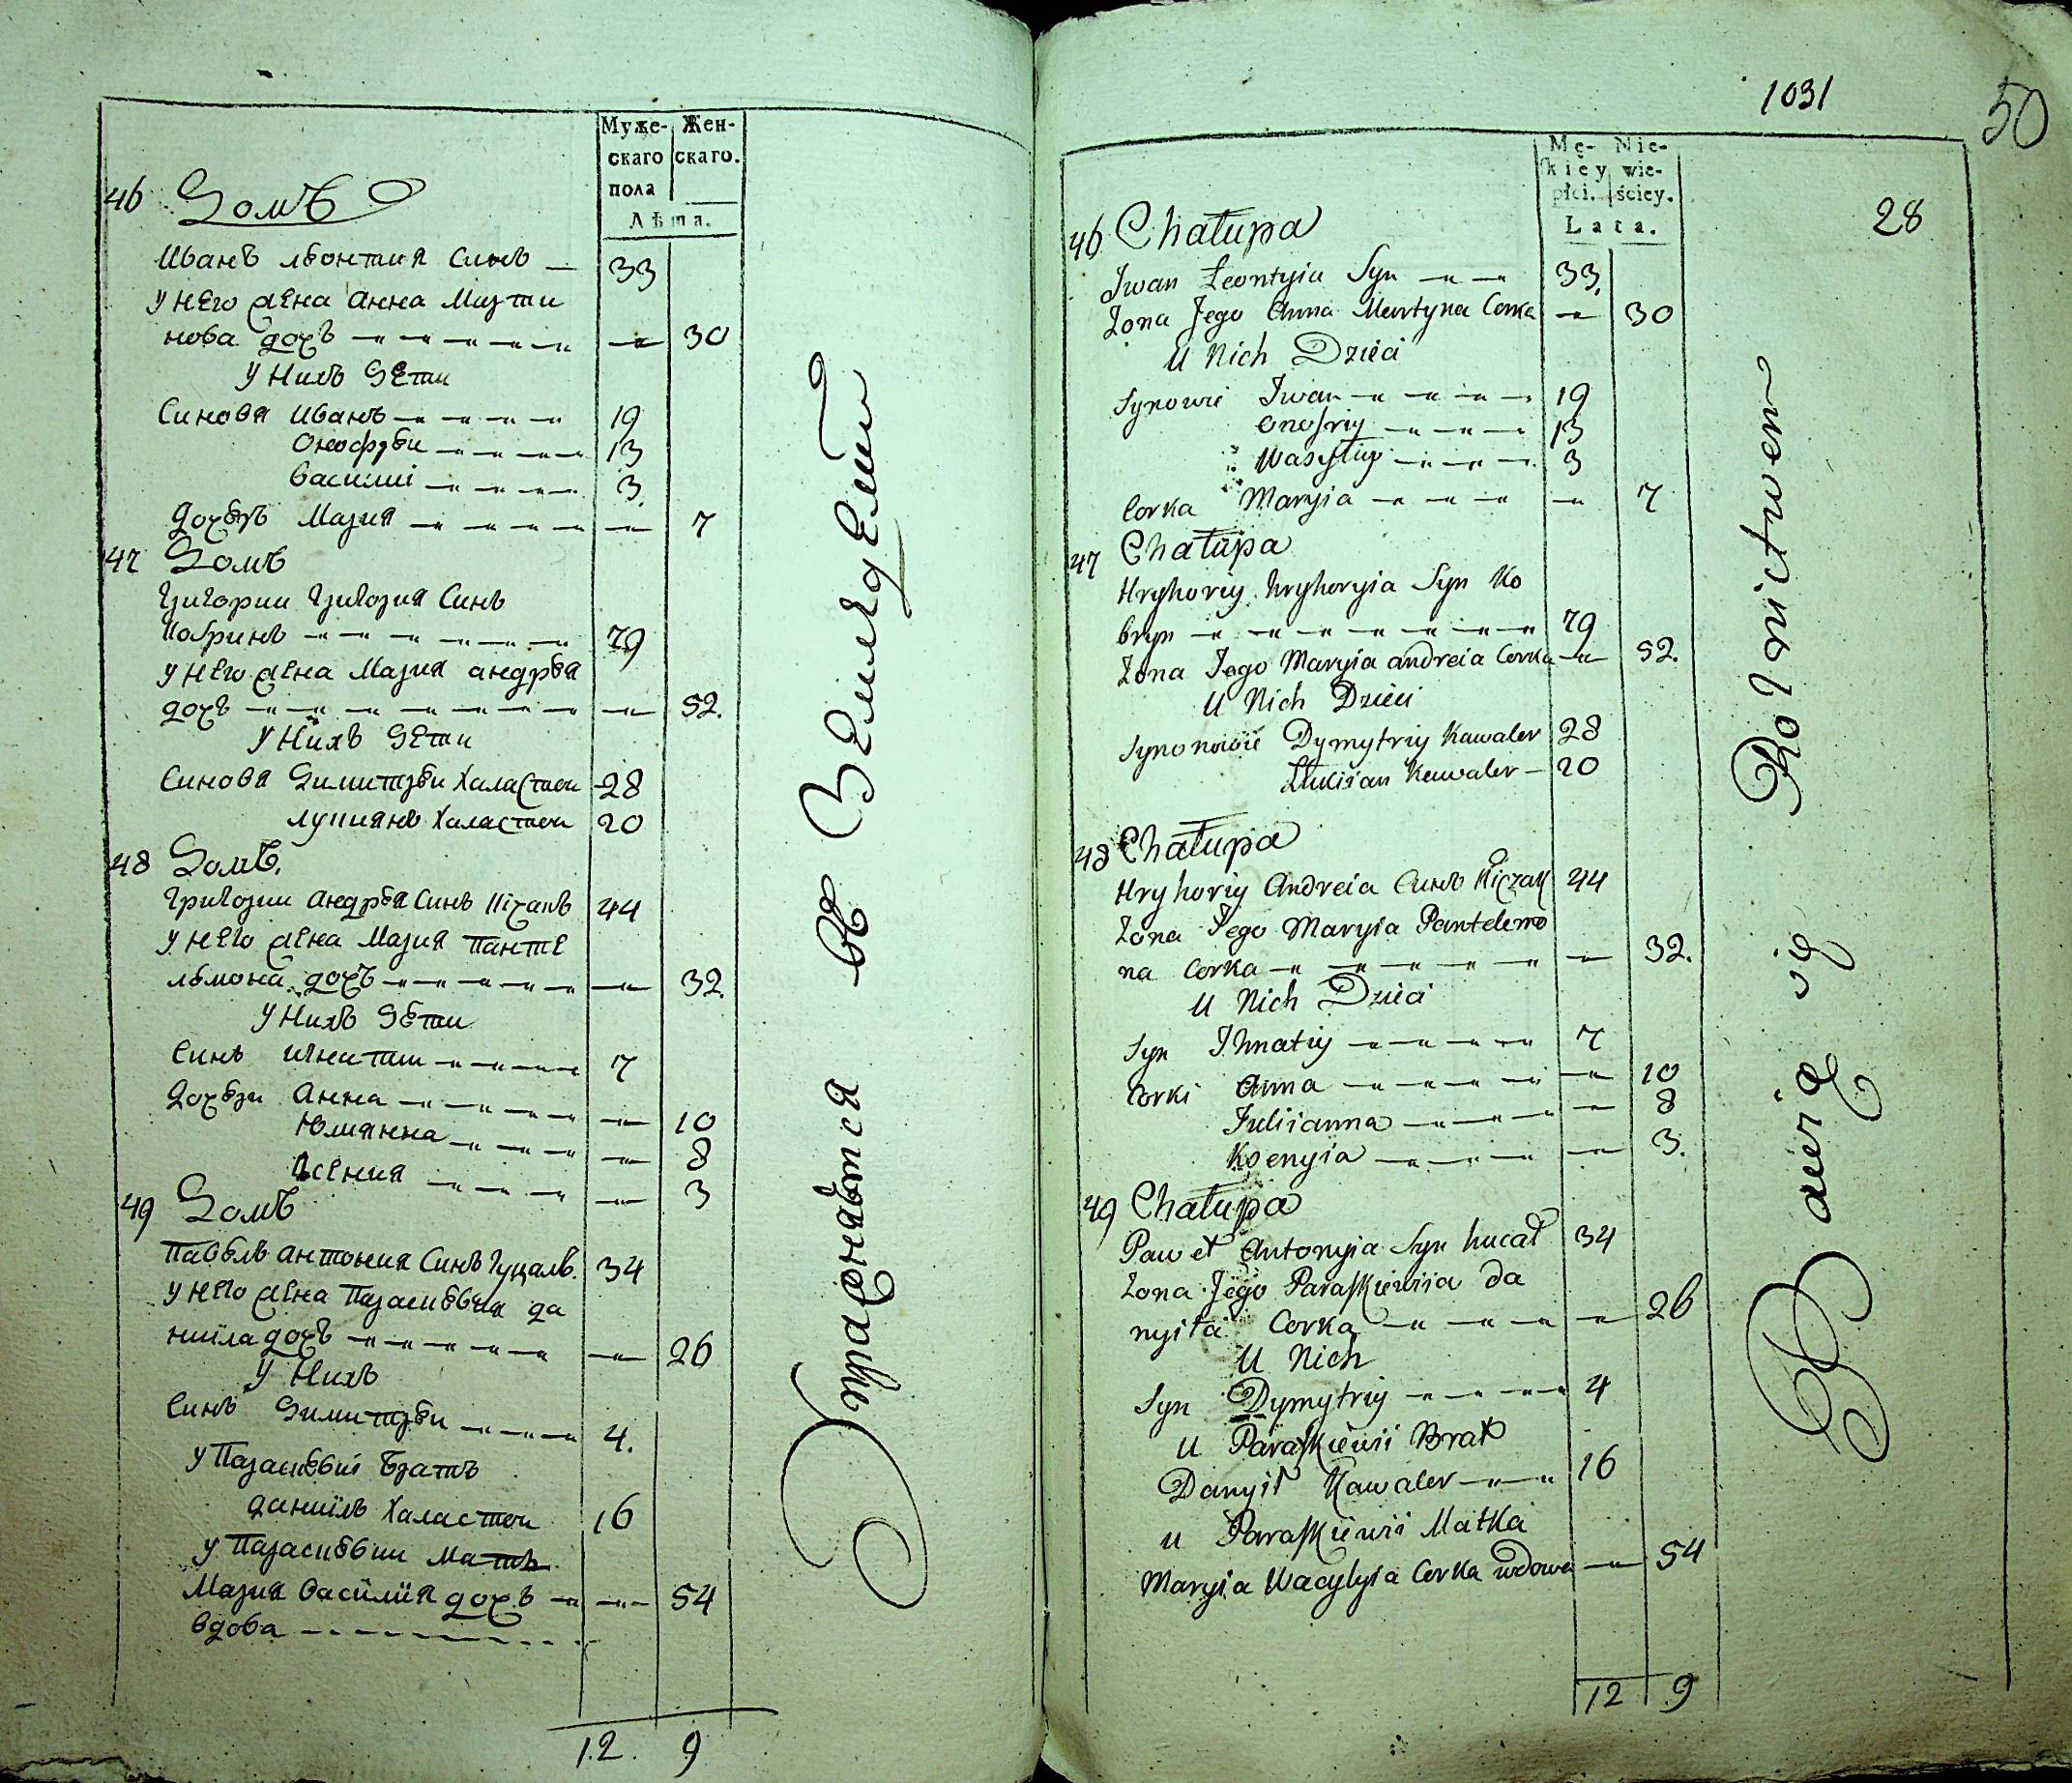 Муже- Жен-
скаго скаго.
пола
Лѣта.
46 Домъ
Иванъ леонтия Синъ — 33
У него жена Анна Марти
нова дочъ — — — — — 30
У Нихъ Дети
Синова Иванъ — — — — 19
Онофрѣи — — — — 13
Василиі — — — — 3.
Дочѣръ Мария — — — — — 7
47 Домъ
Григории Григория Синъ
Кобринъ — — — — — 79
У него жена Мария андрѣя
дочъ — — — — — — — 52.
У Нихъ Дети
Синова Димитрѣи Халастои 28
лукиянъ Халастои 20
48 Домъ.
Григории Андрѣя Синъ Кічакъ 44
У него жена Мария Панте
лѣмона дочъ — — — — — 32.
У Нихъ Дѣти
Синъ Игнатии — — — — 7
Дочѣри Анна — — — — — 10
Юлиянна — — — — 8
Ксения — — — — 3
49 Домъ
Павѣлъ антония Синъ Гуцалъ. 34
У него жена Параскѣвия да
ниіла дочъ — — — — — 26
У Нихъ
Синъ Димитрѣи — — — 4.
У Параскѣвиі Братъ
Даниілъ Халастои 16
У Параскѣвии Мать
Мария Василиія дочъ — — 54
вдова — — — — —
12. 9
Упражняѣтся въ Земледелии
1031
50
Mę- Nie-
kiey wie-
płci. ściey.
Lata.
28
46 Chałupa
Jwan Leontyia Syn — — 33.
Zona Jego Anna Martyna Corka — 30
U Nich Dzieci
Synowie Jwan — — — — 19
Onofriy — — — 13
Wasyliy — — — 3
Corka Maryia — — — — 7
47 Chałupa
Hryhoriy hryhoryia Syn Ko
bryn — — — — — — — 79
Zona Jego Maryia andreia Corka — 52.
U Nich Dzieci
Synonowie Dymytriy Kawaler 28
Łukiian Kawaler — 20
48 Chałupa
Hryhoriy Andreia Синъ Kiczak 44
Zona Jego Maryia Pantelemo
na Corka — — — — — — 32.
U Nich Dzieci
Syn Jhnatiy — — — — — 7
Corki Anna — — — — — 10
Juliianna — — — — 8
Ksenyia — — — — 3.
49 Chałupa
Paweł Antonyia Syn hucał 34
Zona Jego Paraskiewiia Da
nyiła Corka — — — — — 26
U Nich
Syn Dymytriy — — — — 4
U Paraskiewii Brat
Danyił Kawaler — — 16
u Paraskiewii Matka
Maryia Wacylyia Corka wdowa — 54
12 9
Bawią się Rolnictwem